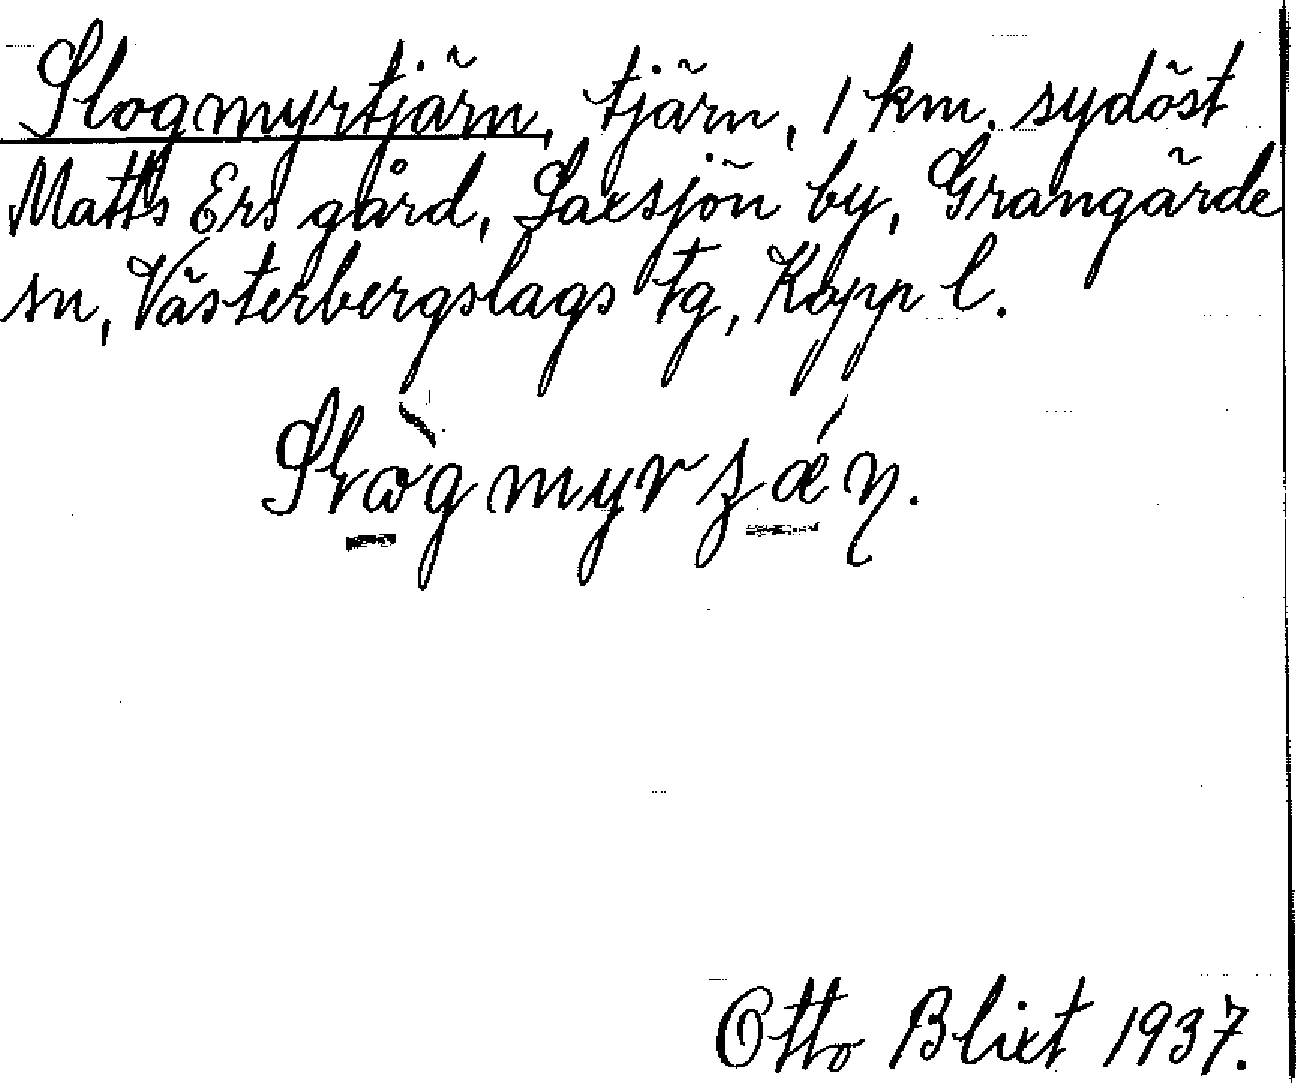 Slogmyrtjärn, tjärn, 1 km. sydöst
Matts Ers gård, Saxsjön by, Grangärde
sn, Västerbergslags tg, Kopp l.
Otto Blixt 1937.